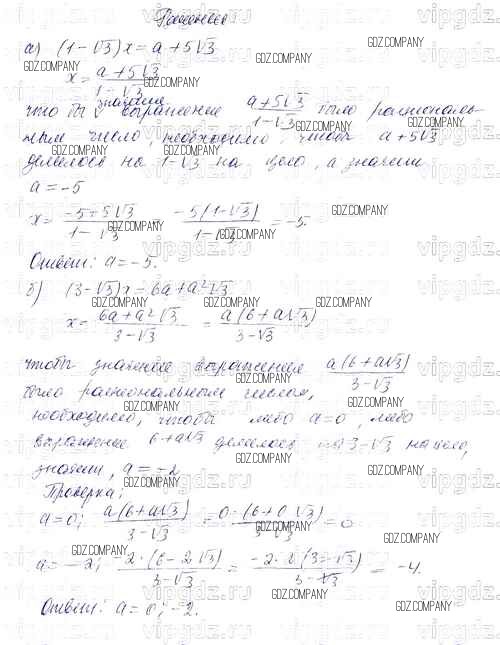 Решение
а) (1-√3)x = a + 5√3
x = (a+5√3)/(1-√3)
что бы значение выражение (a+5√3)/(1-√3) было рациональ-
ным число, необходимо, чтобы a+5√3
делелось на 1-√3 на цело, а значит
a = -5
x = (-5+5√3)/(1-√3) = (-5(1-√3))/(1-√3) = -5.
Ответ: a = -5.
б) (3-√3)x = 6a + a²√3
x = (6a+a²√3)/(3-√3) = (a(6+a√3))/(3-√3)
чтобы значение выражения (a(6+a√3))/(3-√3)
было рациональным числом,
необходимо, чтобы либо a=0, либо
выражение 6+a√3 делелось на 3-√3 на цело,
значит, a = -2
Проверка:
a=0; (a(6+a√3))/(3-√3) = (0·(6+0√3))/(3-√3) = 0
a = -2; (-2·(6-2√3))/(3-√3) = (-2·2(3-√3))/(3-√3) = -4.
Ответ: a=0; -2.
GDZ.COMPANY
vipgdz.ru